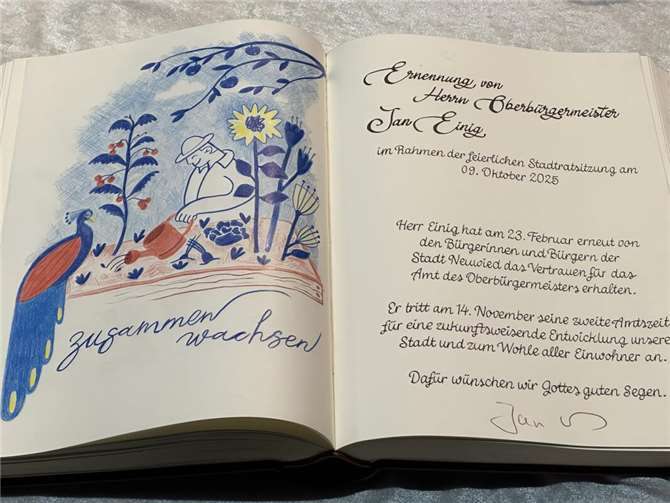 zusammen
wachsen
Ernennung von
Herrn Oberbürgermeister
Jan Einig
im Rahmen der feierlichen Stadtratsitzung am
09. Oktober 2025
Herr Einig hat am 23. Februar erneut von
den Bürgerinnen und Bürgern der
Stadt Neuwied das Vertrauen für das
Amt des Oberbürgermeisters erhalten.
Er tritt am 14. November seine zweite Amtszeit
für eine zukunftsweisende Entwicklung unsere
Stadt und zum Wohle aller Einwohner an.
Dafür wünschen wir Gottes guten Segen.
Jan